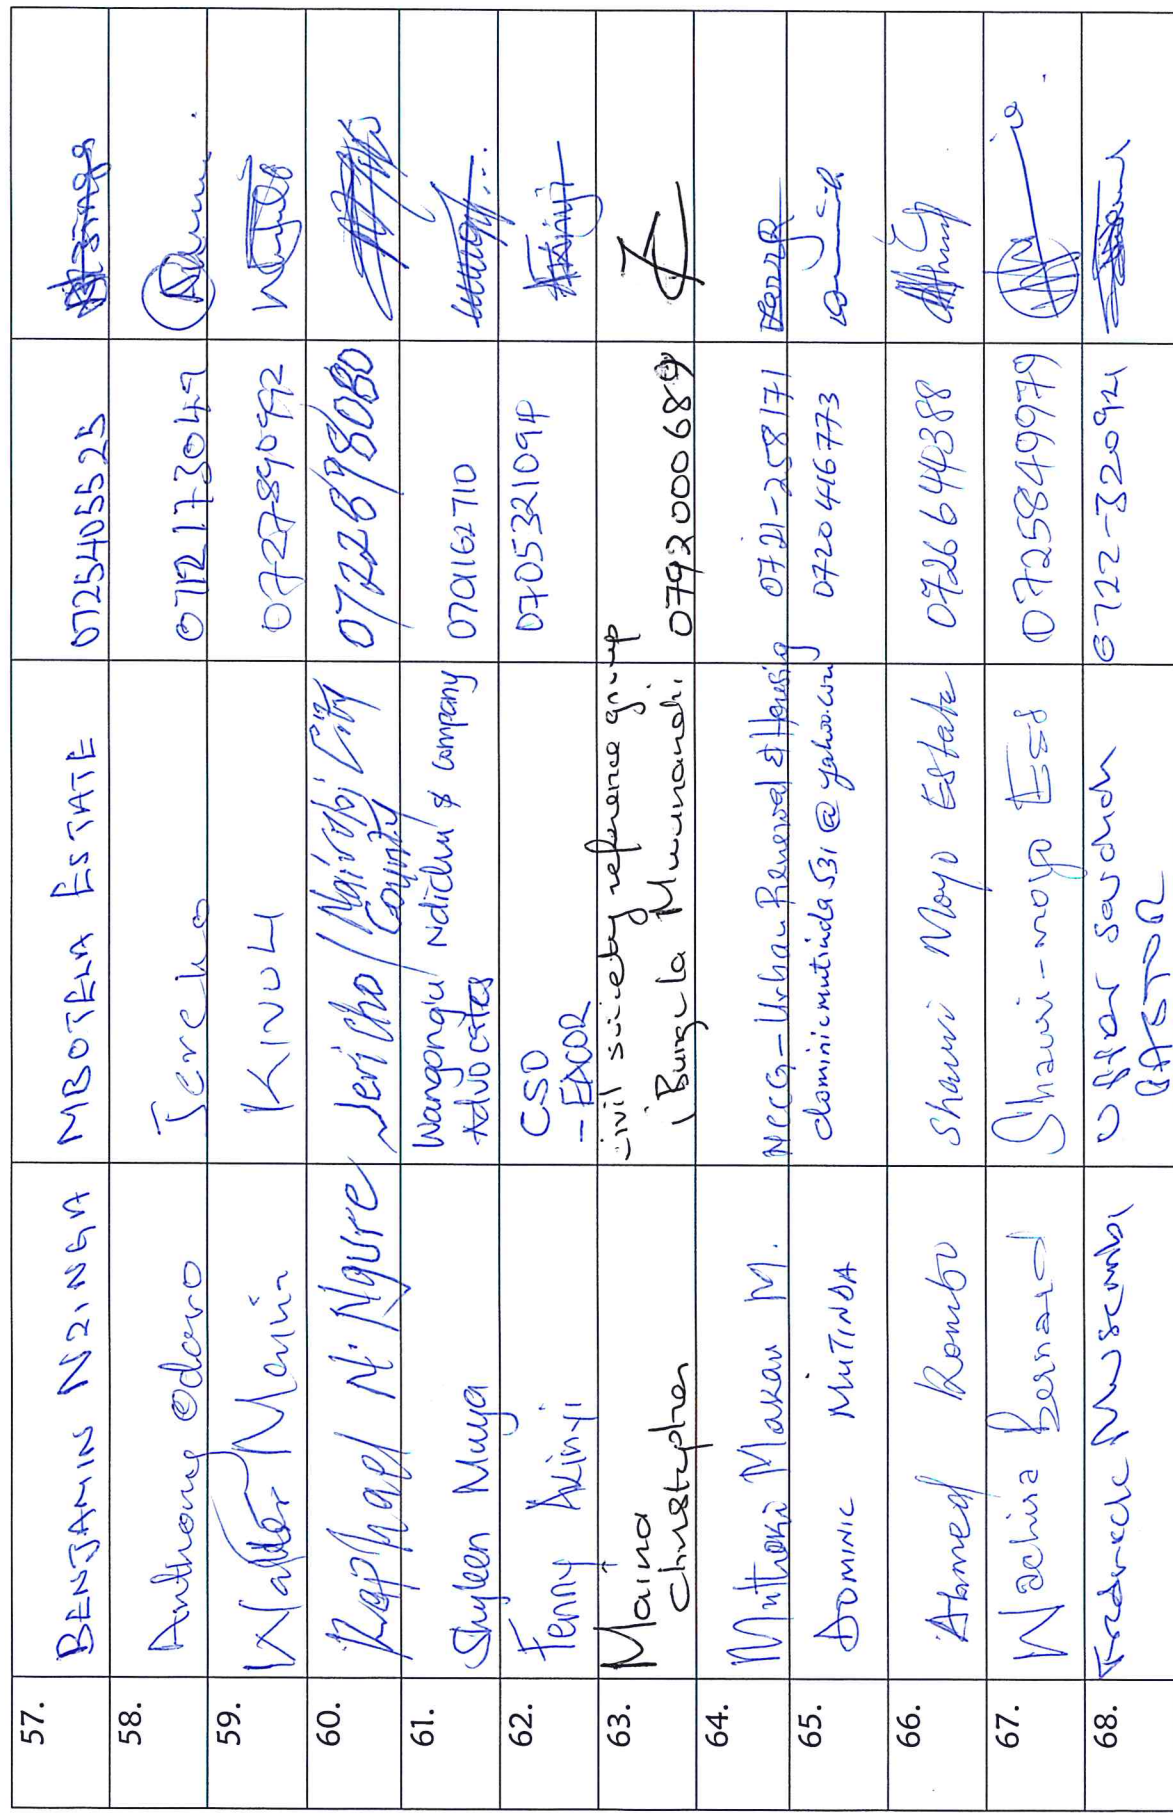 57. BENJAMIN NZINGA MBOTELA ESTATE 0725405525
58. Anthony Odawo Jericho 0712173049
59. Walter Monin KIVULI 0727890992
60. Raphael N. Ngure Jericho / Nairobi City County 0722698080
61. Shyleen Muya Wangong'u Ndichu & Company
Advocates 0701162710
62. Fenny Akinyi CSO
- EACOR 070532109
63. Maina
Christopher civil society reference group
Bunge la Mwananchi 0792000689
64. Mutheki Makau M. NCCG - Urban Renewal & Housing 0721-258171
65. DOMINIC MUTINDA dominicmutinda531@yahoo.com 0720416773
66. Ahmed Rombo Shauri Moyo Estate 0726644388
67. Wachira Bernard Shauri-moyo Est 0725849979
68. Frederick Musemba
PASTOR 0722-320921